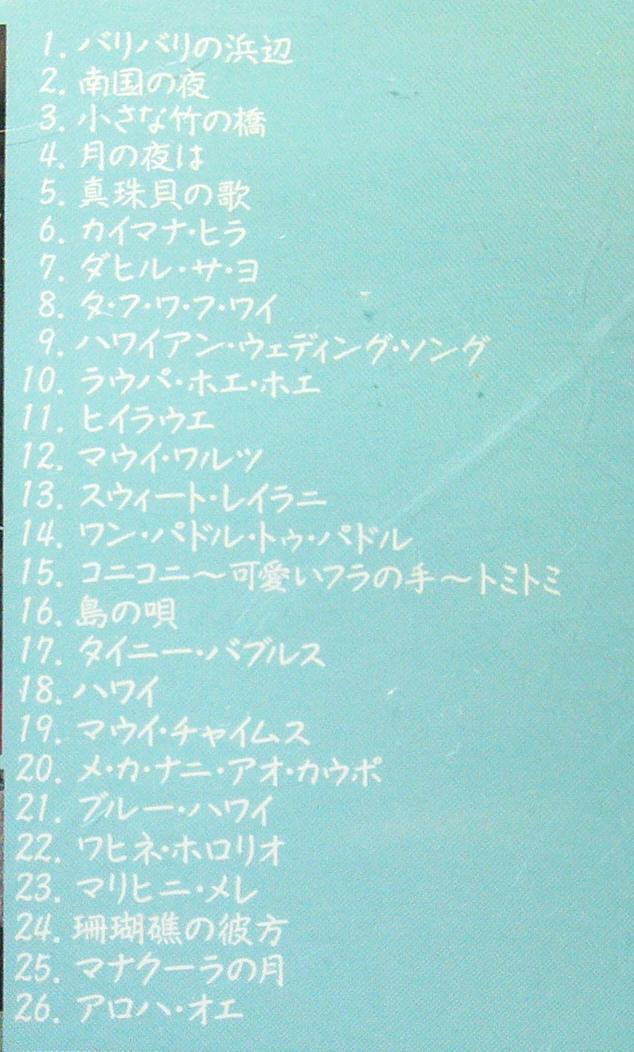 1. バリバリの浜辺
2. 南国の夜
3. 小さな竹の橋
4. 月の夜は
5. 真珠貝の歌
6. カイマナ・ヒラ
7. ダヒル・サ・ヨ
8. タ・フ・ワ・フ・ワイ
9. ハワイアン・ウェディング・ソング
10. ラウパ・ホエ・ホエ
11. ヒイラウエ
12. マウイ・ワルツ
13. スウィート・レイラニ
14. ワン・パドル・トゥ・パドル
15. コニコニ〜可愛いフラの手〜トミトミ
16. 島の唄
17. タイニー・バブルス
18. ハワイ
19. マウイ・チャイムス
20. メ・カ・ナニ・アオ・カウポ
21. ブルー・ハワイ
22. ワヒネ・ホロリオ
23. マリヒニ・メレ
24. 珊瑚礁の彼方
25. マナクーラの月
26. アロハ・オエ